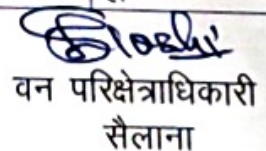 वन परिक्षेत्राधिकारी
सैलाना